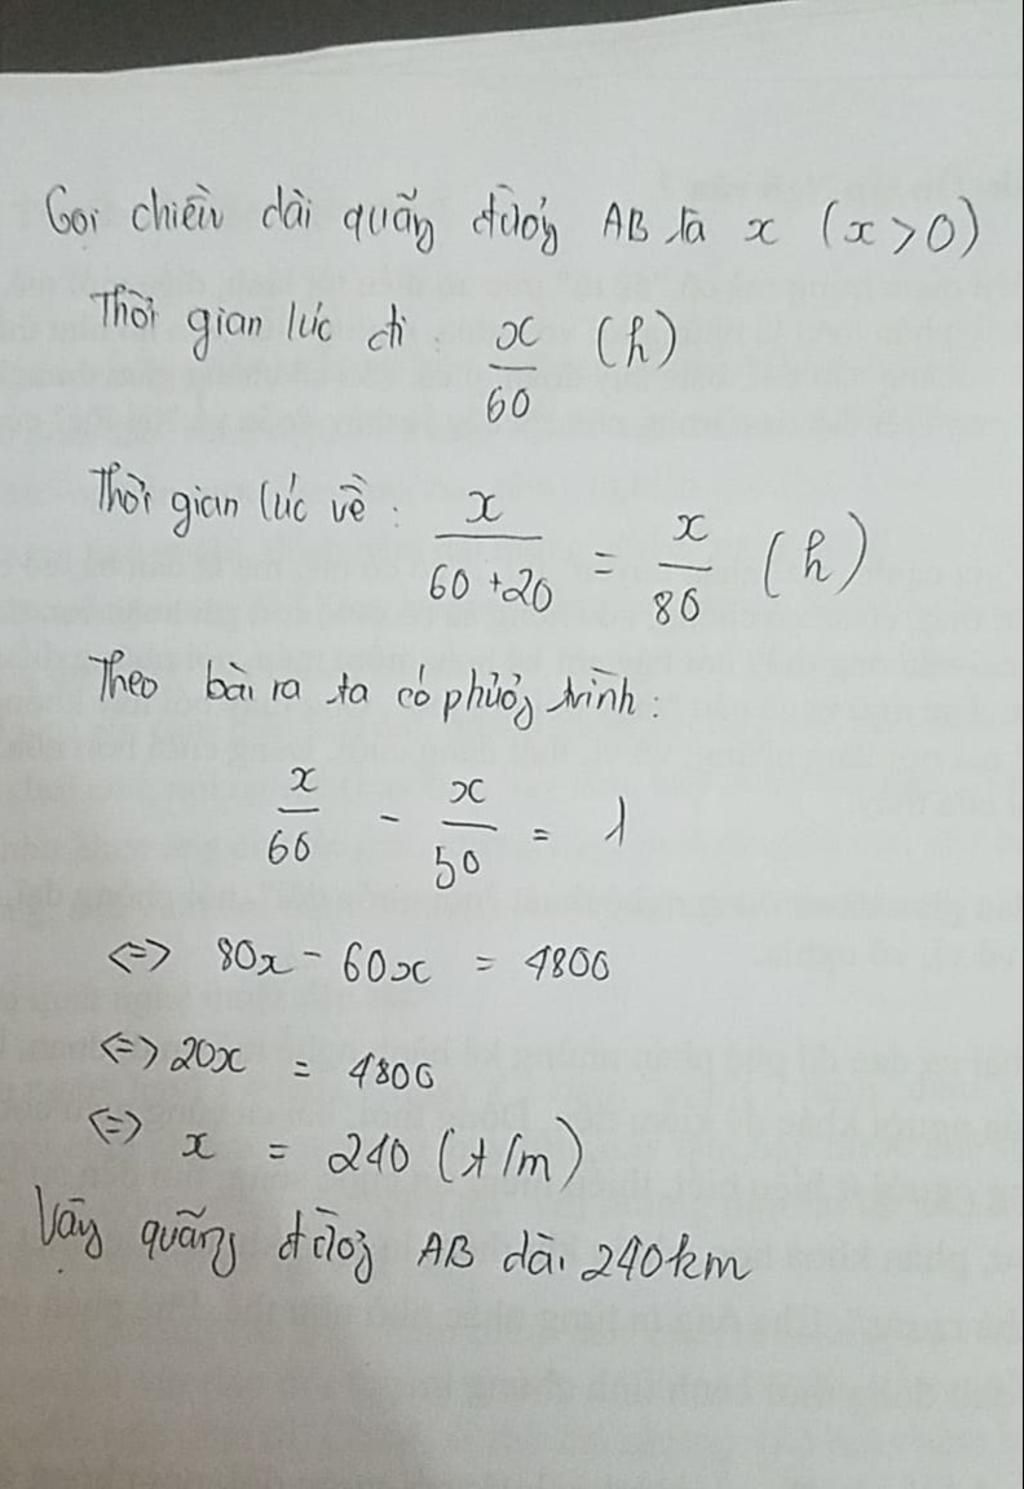 Gọi chiều dài quãng đường AB là x (x>0)
Thời gian lúc đi : x/60 (h)
Thời gian lúc về : x/(60+20) = x/80 (h)
Theo bài ra ta có phương trình :
x/60 - x/50 = 1
<=> 80x - 60x = 4800
<=> 20x = 4800
<=> x = 240 (t/m)
Vậy quãng đường AB dài 240km